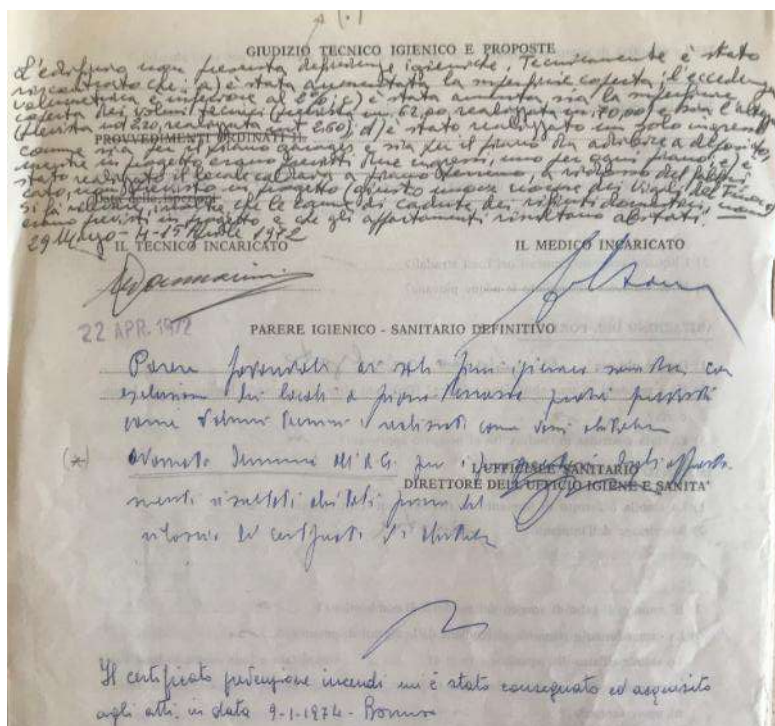 (.)
GIUDIZIO TECNICO IGIENICO E PROPOSTE
L'edificio non presenta deficienze igieniche. Tecnicamente è stato
riscontrato che: a) è stata aumentata la superficie coperta; l'eccedenza
volumetrica è inferiore al 2%; c) è stata aumentata sia la superficie
coperta dei volumi tecnici (prevista in 62,00, realizzata in 70,00) e sia l'altezza
(prevista in 2,20, realizzata in 2,60); d) è stato realizzato un solo ingresso
PROVVEDIMENTI ORDINATI IL
comune sia per il piano e sia per il piano da adibire a deposito,
mentre in progetto erano previsti due ingressi, uno per ogni piano; e) è
stato realizzato il locale caldaia a piano terreno, a ridosso del fabbri
cato, non previsto in progetto (giusto dei Vigili del Fuoco)
Si fa rilevare inoltre che le canne di caduta dei rifiuti domestici, non
erano previsti in progetto e che gli appartamenti risultano abitati.
29 Marzo - 4 - 15 Aprile 1972
IL TECNICO INCARICATO
IL MEDICO INCARICATO
22 APR. 1972
PARERE IGIENICO - SANITARIO DEFINITIVO
Parere favorevole ai soli fini igienico sanitari, con
esclusione dei locali a piano terrazzo perché previsti
come volumi tecnici e realizzati come vani abitabili
(*)
denuncia all'A.G. per i proprietari degli apparta
L'UFFICIALE SANITARIO
DIRETTORE DELL'UFFICIO IGIENE E SANITA'
menti risultati abitati prima del
rilascio del certificato di abitabilità
Il certificato prevenzione incendi mi è stato consegnato ed acquisito
agli atti in data 9-1-1974 -